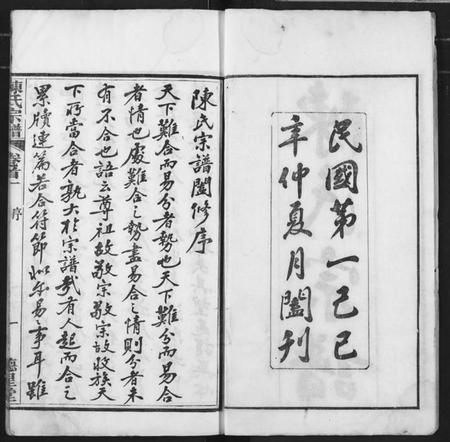 民國第一己巳
年仲夏月闔刊
陳氏宗譜闔修序
天下難合而易分者勢也天下難分而易合
者情也處難合之勢盡易合之情則分者未
有不合也語云尊祖故敬宗敬宗故收族天
下所當合者孰大於宗譜哉有人起而合之
累牘連篇若合符節似亦易事耳雖
陳氏宗譜
卷首一
序
一
德星堂